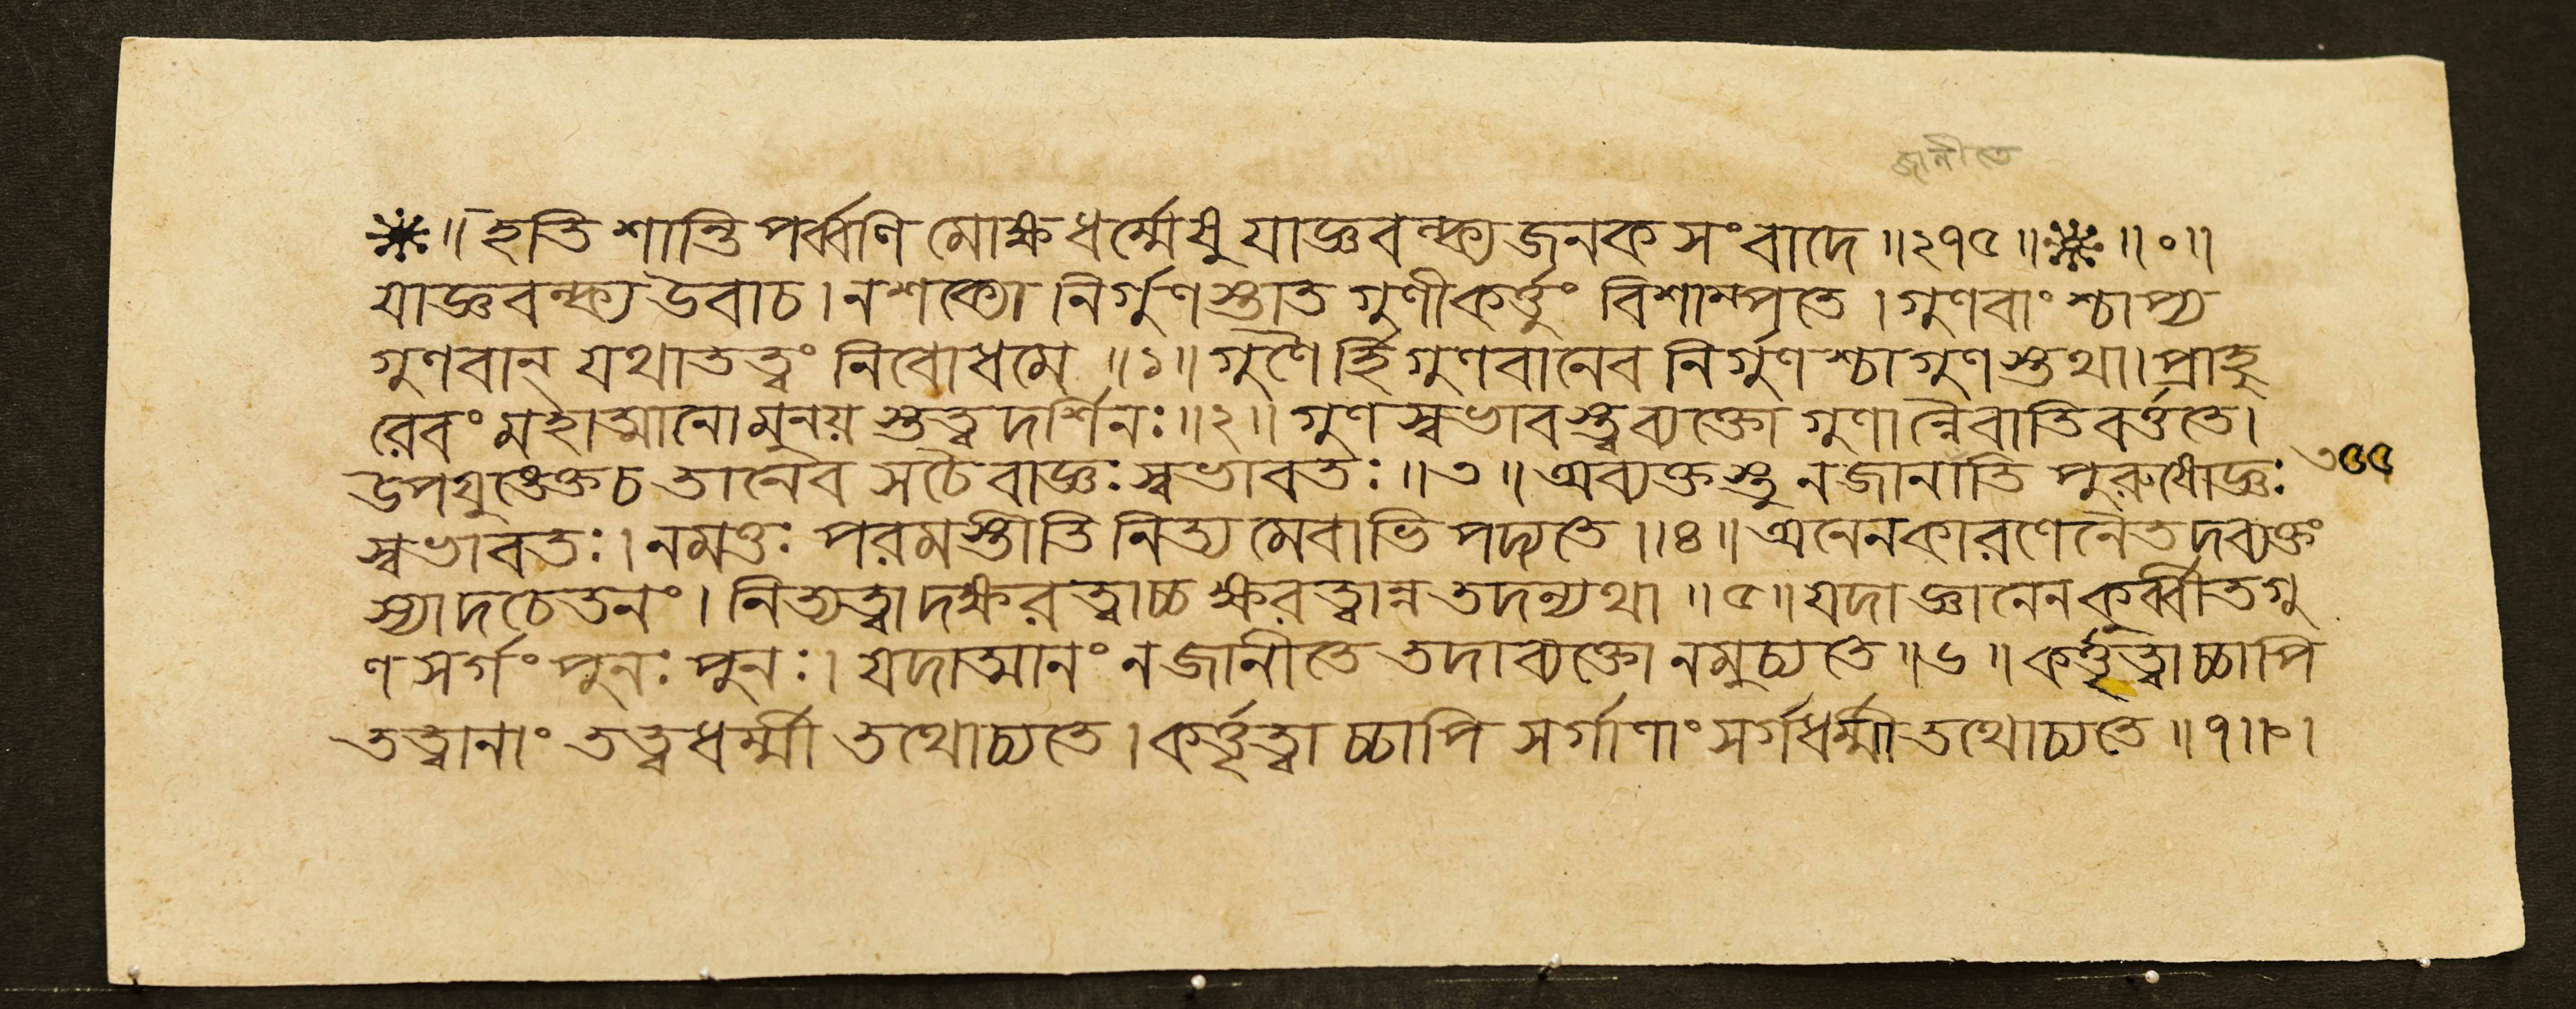 জানীতে
॥ ইতি শান্তি পর্ব্বণি মোক্ষ ধর্ম্মেষু যাজ্ঞবল্ক্য জনক সংবাদে ॥২৭৫॥ ॥॰॥
যাজ্ঞবল্ক্য উবাচ । ন শক্যো নির্গুণস্তাত গুণীকর্ত্তুং বিশাম্পতে । গুণবাংশ্চাপ্য
গুণবান্ যথাতত্ত্বং নিবোধমে ॥১॥ গুণৈর্হি গুণবানেব নির্গুণশ্চাগুণস্তথা । প্রাহু
রেবং মহাত্মানো মুনয়স্তত্ত্বদর্শিনঃ ॥২॥ গুণস্বভাবস্ত্বব্যক্তো গুণান্নৈবাতিবর্ত্ততে ।
উপযুঙ্ক্তে চ তানেব সচৈবাজ্ঞঃ স্বভাবতঃ ॥৩॥ অব্যক্তস্তু ন জানাতি পুরুষোজ্ঞঃ
৩৫৫
স্বভাবতঃ । নমত্তঃ পরমস্তীতি নিত্যমেবাভিপদ্যতে ॥৪॥ অনেন কারণেনৈতদব্যক্তং
স্যাদচেতনং । নিত্যত্বাদক্ষরত্বাচ্চ ক্ষরত্বান্ন তদন্যথা ॥৫॥ যদাজ্ঞানেন কুর্ব্বীত গু
ণ সর্গং পুনঃ পুনঃ । যদাত্মানং ন জানীতে তদাব্যক্তো ন মুচ্যতে ॥৬॥ কর্ত্তৃত্বাচ্চাপি
তত্ত্বানাং তত্ত্বধর্ম্মী তথোচ্যতে । কর্ত্তৃত্বাচ্চাপি সর্গাণাং সর্গধর্ম্মী তথোচ্যতে ॥৭॥॰।